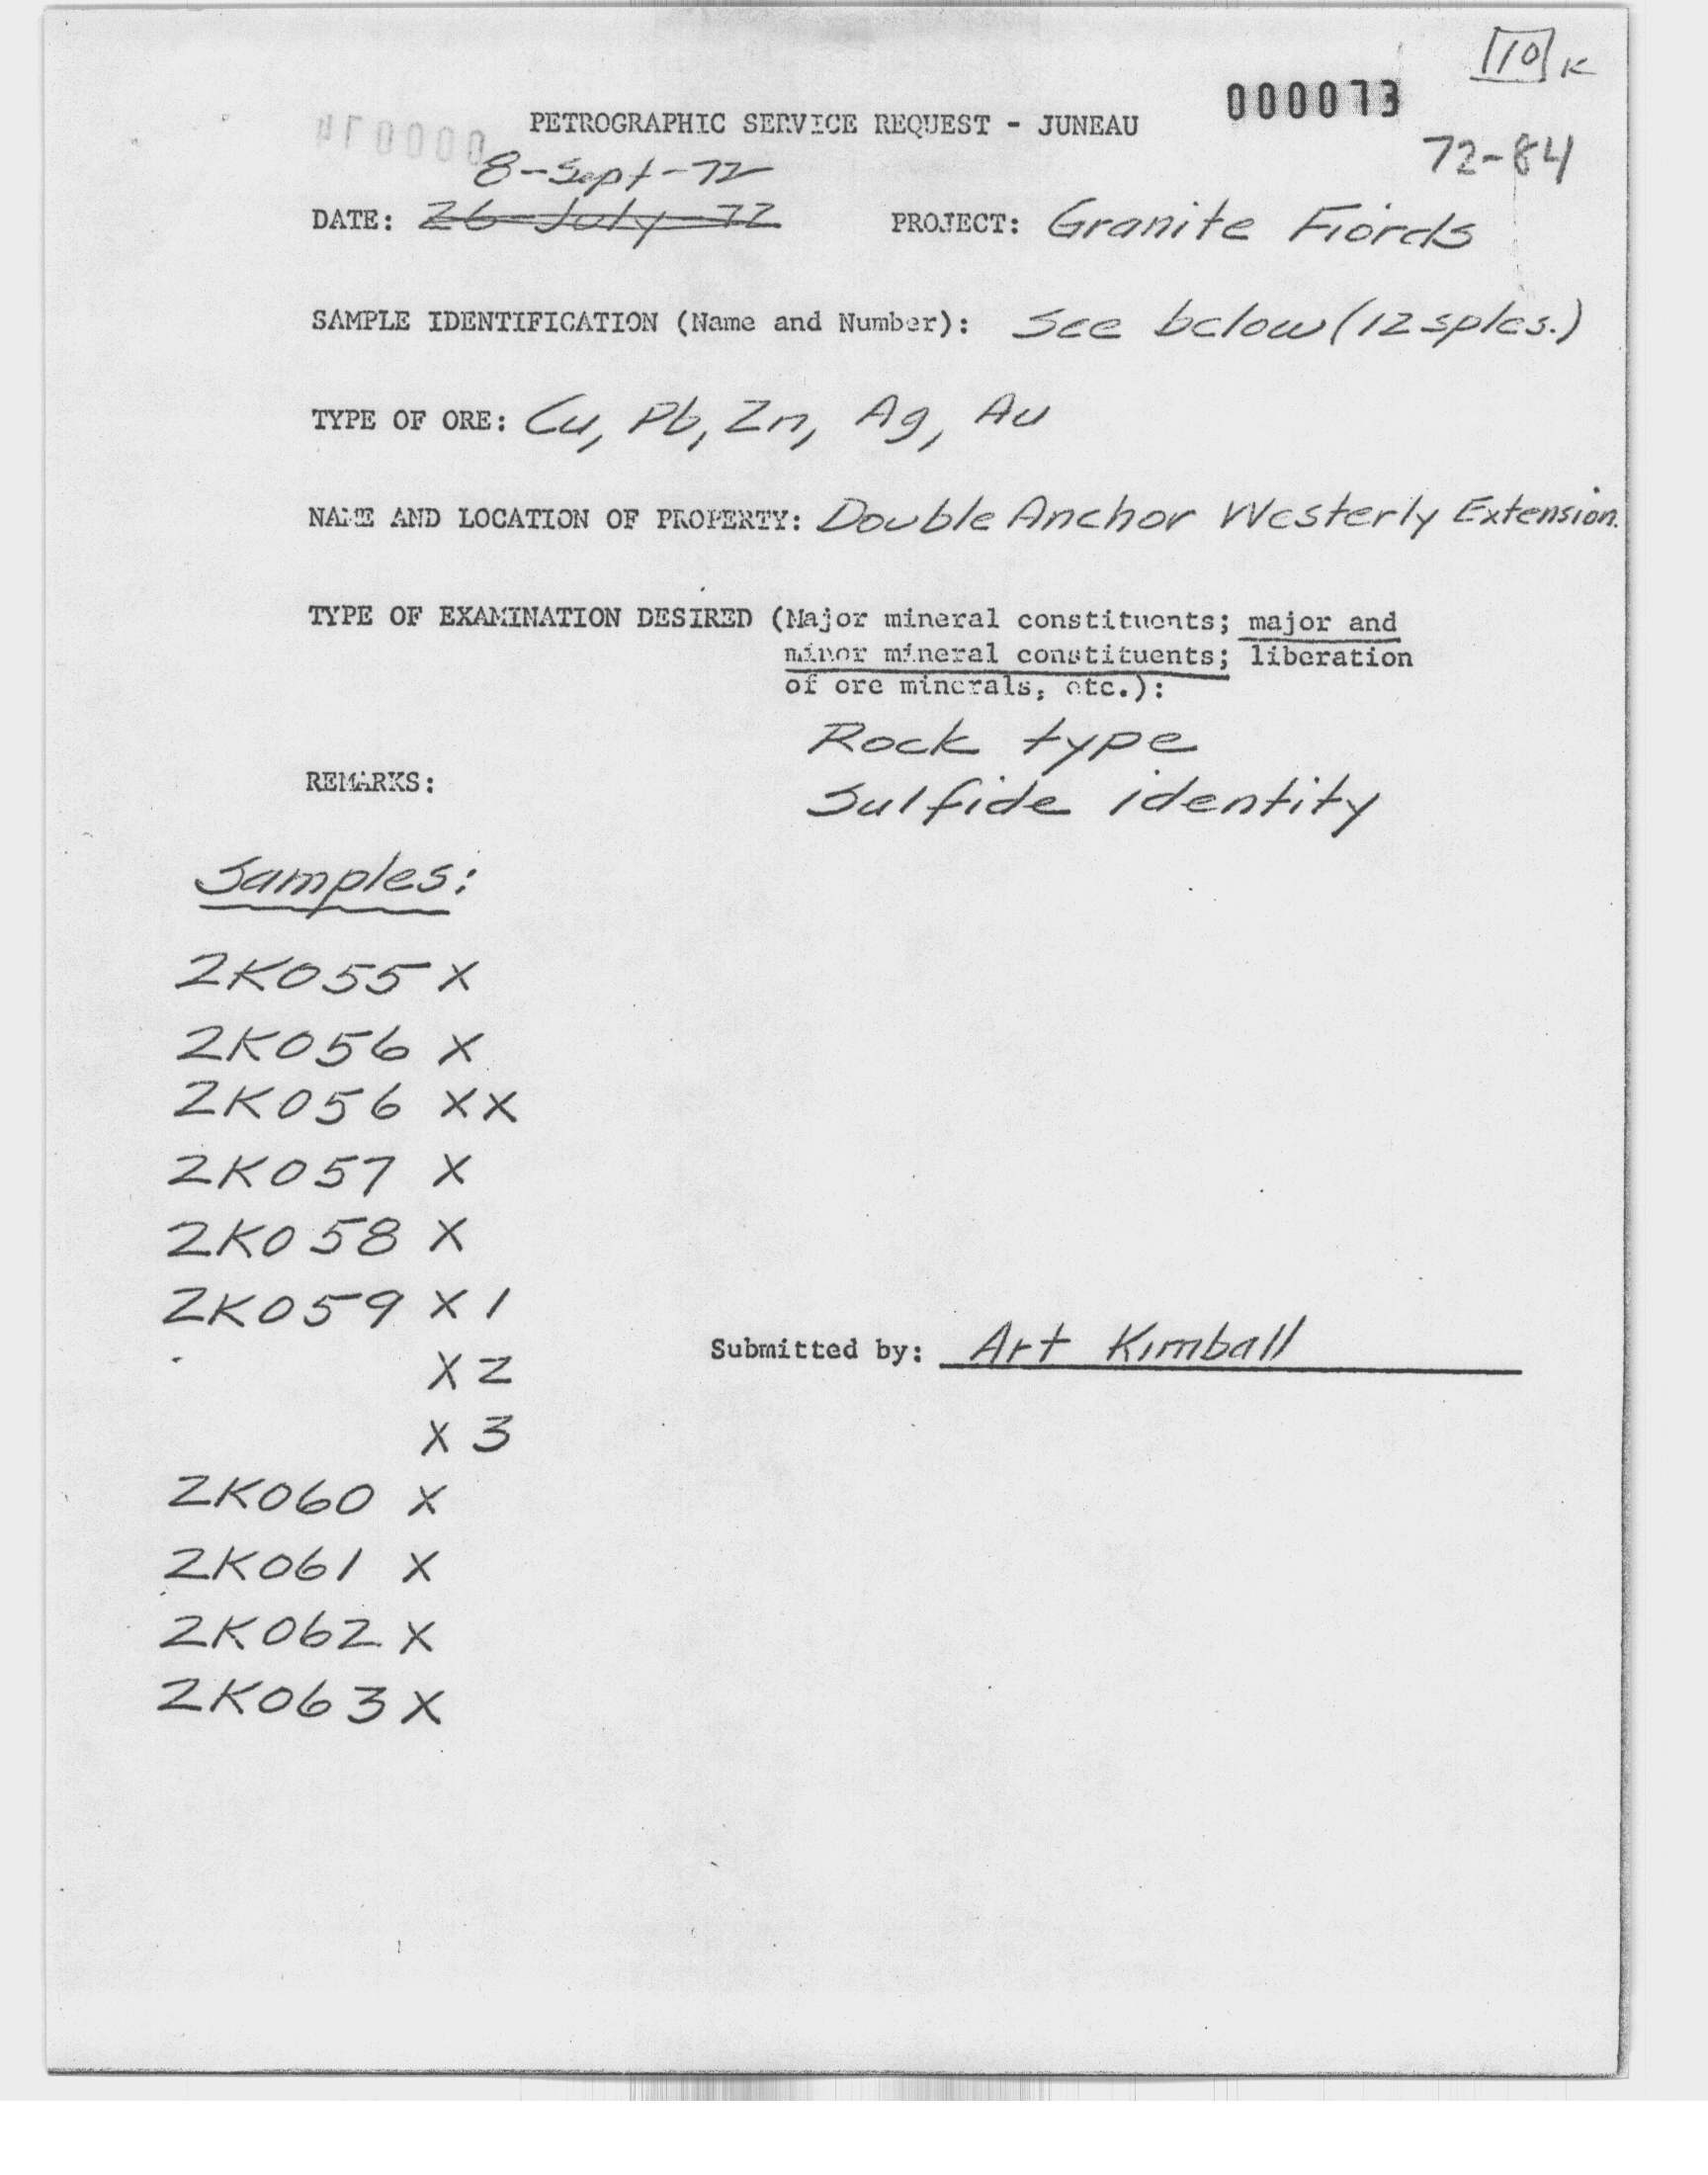 10 K
000073
PETROGRAPHIC SERVICE REQUEST - JUNEAU
72-84
8-Sept-72
DATE: 26-July-72 PROJECT: Granite Fiords
SAMPLE IDENTIFICATION (Name and Number): See below (12 sples.)
TYPE OF ORE: Cu, Pb, Zn, Ag, Au
NAME AND LOCATION OF PROPERTY: Double Anchor Westerly Extension.
TYPE OF EXAMINATION DESIRED (Major mineral constituents; major and
minor mineral constituents; liberation
of ore minerals, etc.):
Rock type
REMARKS:
Sulfide identity
Samples:
2K055 X
2K056 X
2K056 XX
2K057 X
2K058 X
2K059 X 1
X 2
X 3
2K060 X
2K061 X
2K062 X
2K063 X
Submitted by: Art Kimball